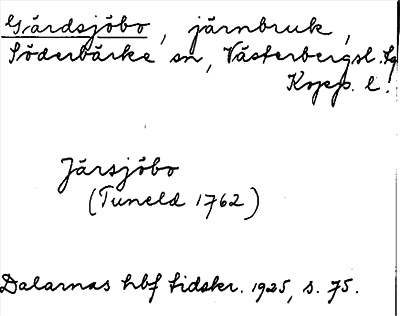 Gärdsjöbo, järnbruk,
Söderbärke sn, Västerbergsl. fg
Kopp. l.
Järsjöbo
(Tuneld 1762)
Dalarnas hbf tidskr. 1925, s. 75.